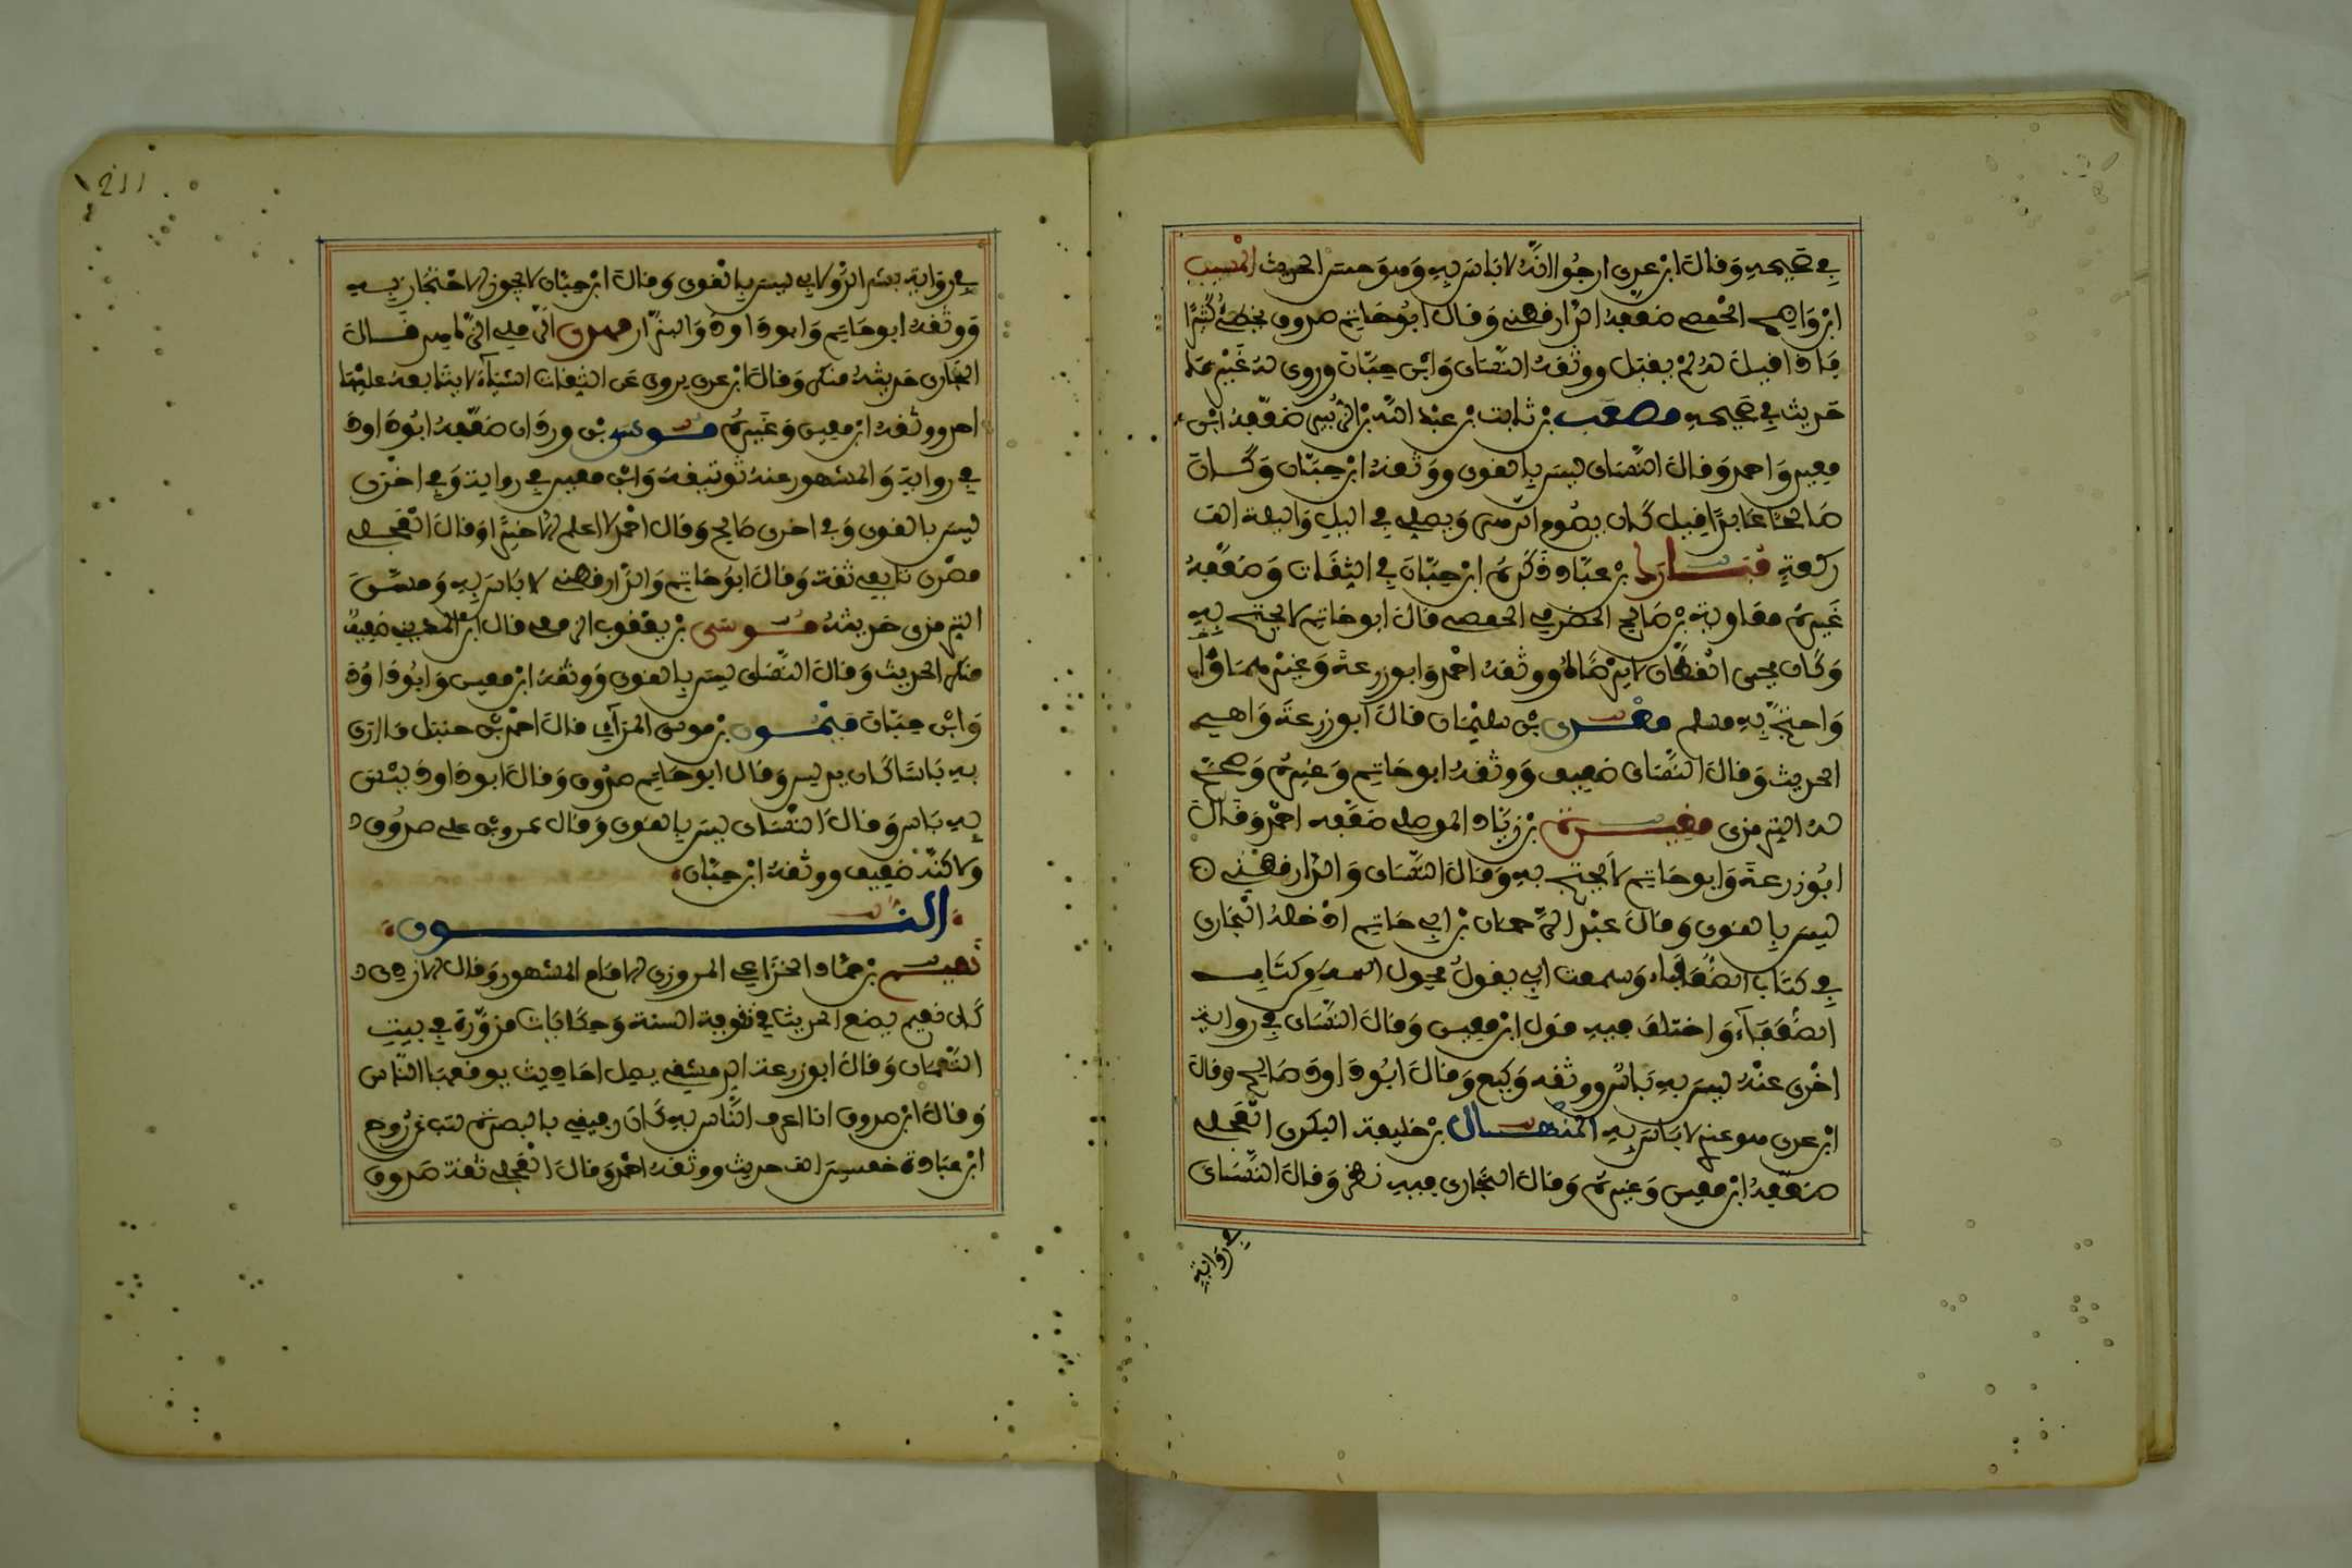 في صحيحه وقال ابن عدي ارجوا انه لا باس به وهو حسن الحديث المسيب
ابن واضح الحمصي ضعفه الدارقطني وقال ابو حاتم صدوق يخطئ كثيرا
فاذا قيل له لم يقبل ووثقه النسائي وابن حبان وروى له غير ما
حديث في صحيحه مصعب بن ثابت بن عبد الله بن الزبير ضعفه ابن
معين واحمد وقال النسائي ليس بالقوي ووثقه ابن حبان وكان
صالحا عابدا قيل كان يصوم الدهر ويصلي في اليل واليلة الف
ركعة بن عباد ذكره ابن حبان في الثقات وضعفه
غيره معاوية بن صالح الحضرمي الحمصي قال ابو حاتم لا يحتج به
وكان يحيى القطان لا يرضاه ووثقه احمد وابو زرعة وغيرهما
واحتج به مسلم معدي بن سليمان قال ابو زرعة واهي
الحديث وقال النسائي ضعيف ووثقه ابو حاتم وغيره وصحح
له الترمذي مغيرة بن زياد الموصلي ضعفه احمد وقال
ابو زرعة وابو حاتم لا يحتج به وقال النسائي والدارقطني
ليس بالقوي وقال عبد الرحمان بن ابي حاتم ادخله البخاري
في كتاب الضعفاء وسمعت ابي يقول يحول اسمه من كتاب
الضعفاء واختلف فيه قول ابن معين وقال النسائي في رواية
اخرى عنه ليس به باس ووثقه وكيع وقال ابو داود صالح وقال
ابن عدي هو عندي لا باس به المنهال بن خليفة البكري العجلي
ضعفه ابن معين وغيره وقال البخاري فيه نظر وقال النسائي
في رواية
211
في رواية بشر الدولابي ليس بالقوي وقال ابن حبان لا يجوز الاحتجاج به
ووثقه ابو حاتم وابو داود والبزار قال
البخاري حديثه منكر وقال ابن عدي يروي عن الثقات اشياء لا يتابعه عليها
احد ووثقه ابن معين وغيره موسى بن وردان ضعفه ابو داود
في رواية والمشهور عنه توثيقه وابن معين في رواية وفي اخرى
ليس بالقوي وفي اخرى صالح وقال احمد لا اعلم الا خيرا وقال العجلي
مصري تابعي ثقة وقال ابو حاتم والدارقطني لا باس به وحسن
الترمذي حديثه موسى بن يعقوب الزمعي قال ابن المديني ضعيف
منكر الحديث وقال النسائي ليس بالقوي ووثقه ابن معين وابو داود
وابن حبان ميمون بن موسى المرائي قال احمد بن حنبل ما ارى
به باسا كان يدلس وقال ابو حاتم صدوق وقال ابو داود ليس
به باس وقال النسائي ليس بالقوي وقال عمرو بن علي صدوق
ولاكنه ضعيف ووثقه ابن حبان
النون
نعيم بن حماد الخزاعي المروزي الامام المشهور وقال الازدي
كان نعيم يضع الحديث في تقوية السنة وحكايات مزورة في بيت
النعمان وقال ابو زرعة الدمشقي يصل احاديث يوقفها الناس
وقال ابن صدوق انا اعرف الناس به كان رفيقي بالبصرة كتب عن روح
ابن عبادة خمسين الف حديث ووثقه احمد وقال العجلي ثقة صدوق